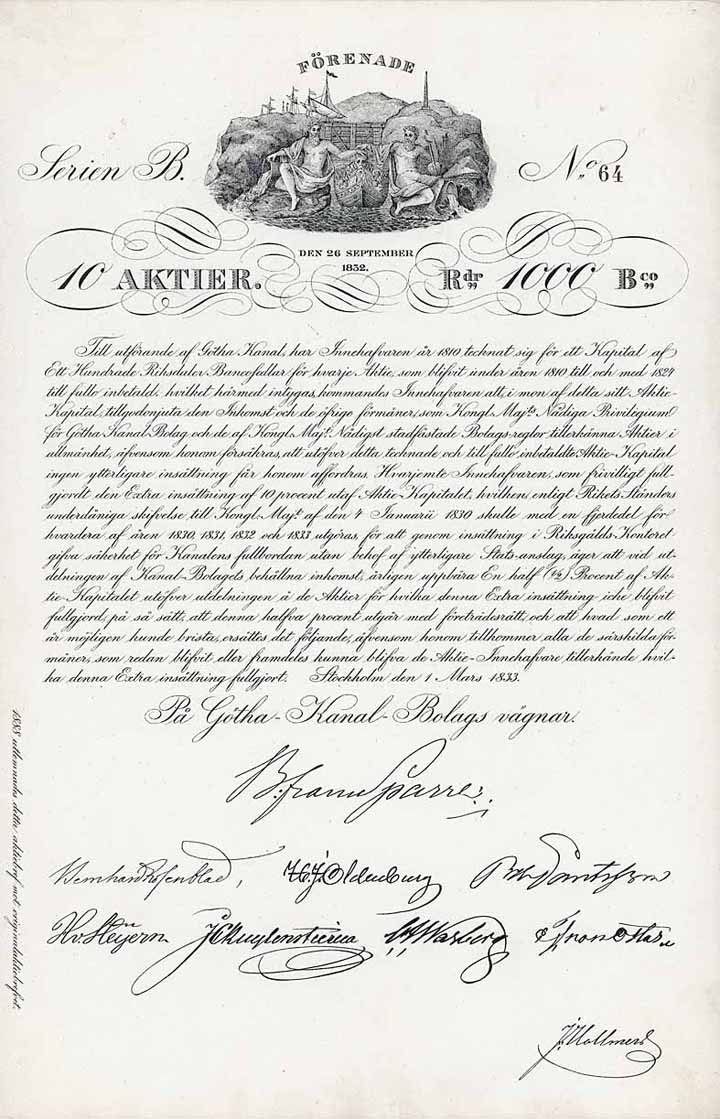 FÖRENADE
Serien B.
No 64
DEN 26 SEPTEMBER
1832.
10 AKTIER.
Rdr 1000 Bco
Till utförande af Götha Kanal, har Innehafvaren år 1810 tecknat sig för ett Kapital af
Ett Hundrade Riksdaler Bancosedlar för hvarje Aktie, som blifvit under åren 1810 till och med 1824
till fullo inbetald, hvilket härmed intygas, kommandes Innehafvaren att, i mon af detta sitt Aktie-
Kapital, tillgodonjuta den Inkomst och de öfrige förmåner, som Kongl. Majts Nådiga Privilegium
för Götha Kanal-Bolag och de af Kongl. Majt Nådigst stadfästade Bolags-reglor tillerkänna Aktier i
allmänhet, äfvensom honom försäkras, att utöfver detta tecknade och till fullo inbetaldte Aktie-Kapital
ingen ytterligare insättning får honom affordras. Hvarjemte Innehafvaren, som frivilligt full-
gjordt den Extra insättning af 10 procent utaf Aktie-Kapitalet, hvilken, enligt Rikets Ständers
underdåniga skrifvelse till Kongl. Majt af den 4 Januarii 1830 skulle med en fjerdedel för
hvardera af åren 1830, 1831, 1832 och 1833 utgöras, för att genom insättning i Riksgälds-Kontoret
gifva säkerhet för Kanalens fullbordan utan behof af ytterligare Stats-anslag, äger att vid ut-
delningen af Kanal-Bolagets behållna inkomst, årligen uppbära En half (½) Procent af Ak-
tie-Kapitalet utöfver utdelningen å de Aktier för hvilka denna Extra insättning icke blifvit
fullgjord, på så sätt, att denna halfva procent utgår med företrädesrätt, och att hvad som ett
år möjligen kunde brista, ersättes det följande, äfvensom honom tillkommer alla de särskilda för-
måner, som redan blifvit eller framdeles kunna blifva de Aktie-Innehafvare tillerkände hvil-
ka denna Extra insättning fullgjort. Stockholm den 1 Mars 1833.
På Götha-Kanal-Bolags vägnar.
B. Franc Sparre
Bernhard Rosenblad, H.J. Oldenburg
H. v. Heijern J C Kuylenstierna Warberg
1888 utlemnades detta aktiebref mot originalaktiebrefvet.